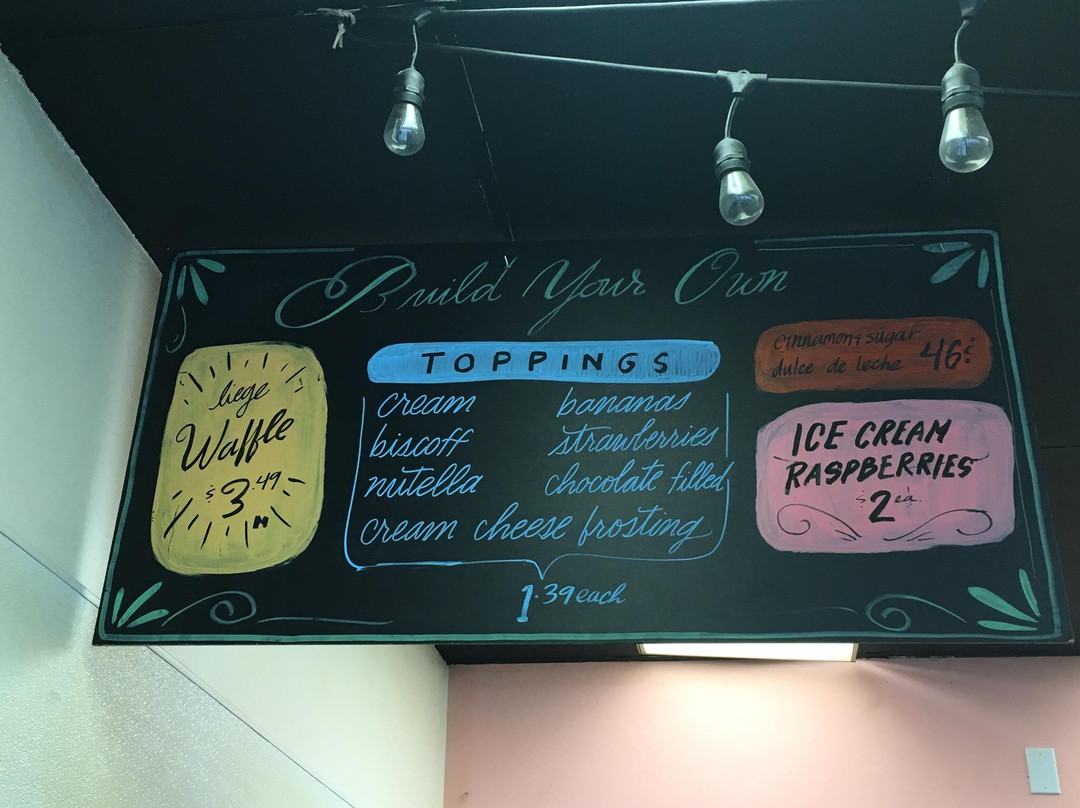 Build Your Own
liege
Waffle
$3.49
TOPPINGS
cream bananas
biscoff strawberries
nutella chocolate filled
cream cheese frosting
1.39 each
cinnamon + sugar
dulce de leche 46¢
ICE CREAM
RASPBERRIES
$2 ea.